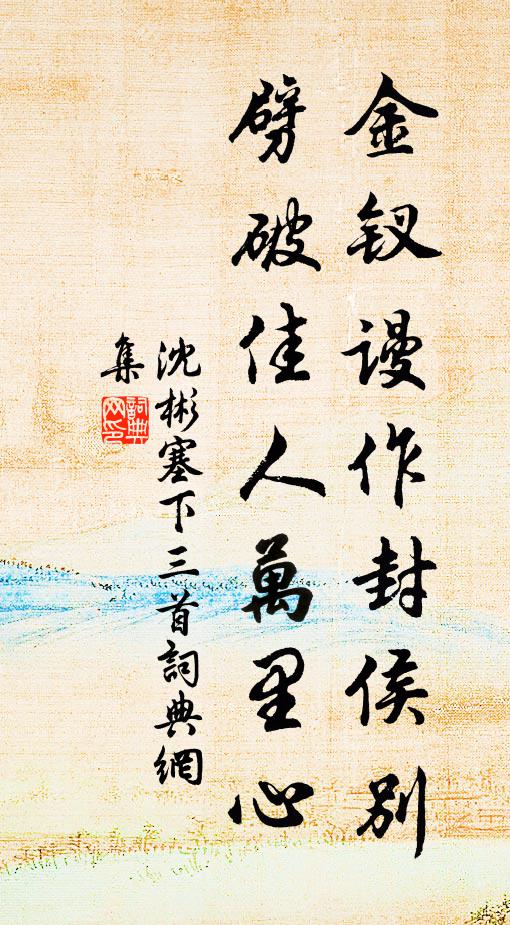 金釵謾作封侯別
劈破佳人萬里心
沈彬塞下三首詞典網
集
詞典
网印